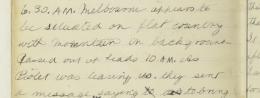 6.30. A.M. Melbourne appears to
be situated on flat country
with mountain in background.
Passed out of heads 10 A.M. As
Pilot was leaving us they sent
a message saying to as to bring